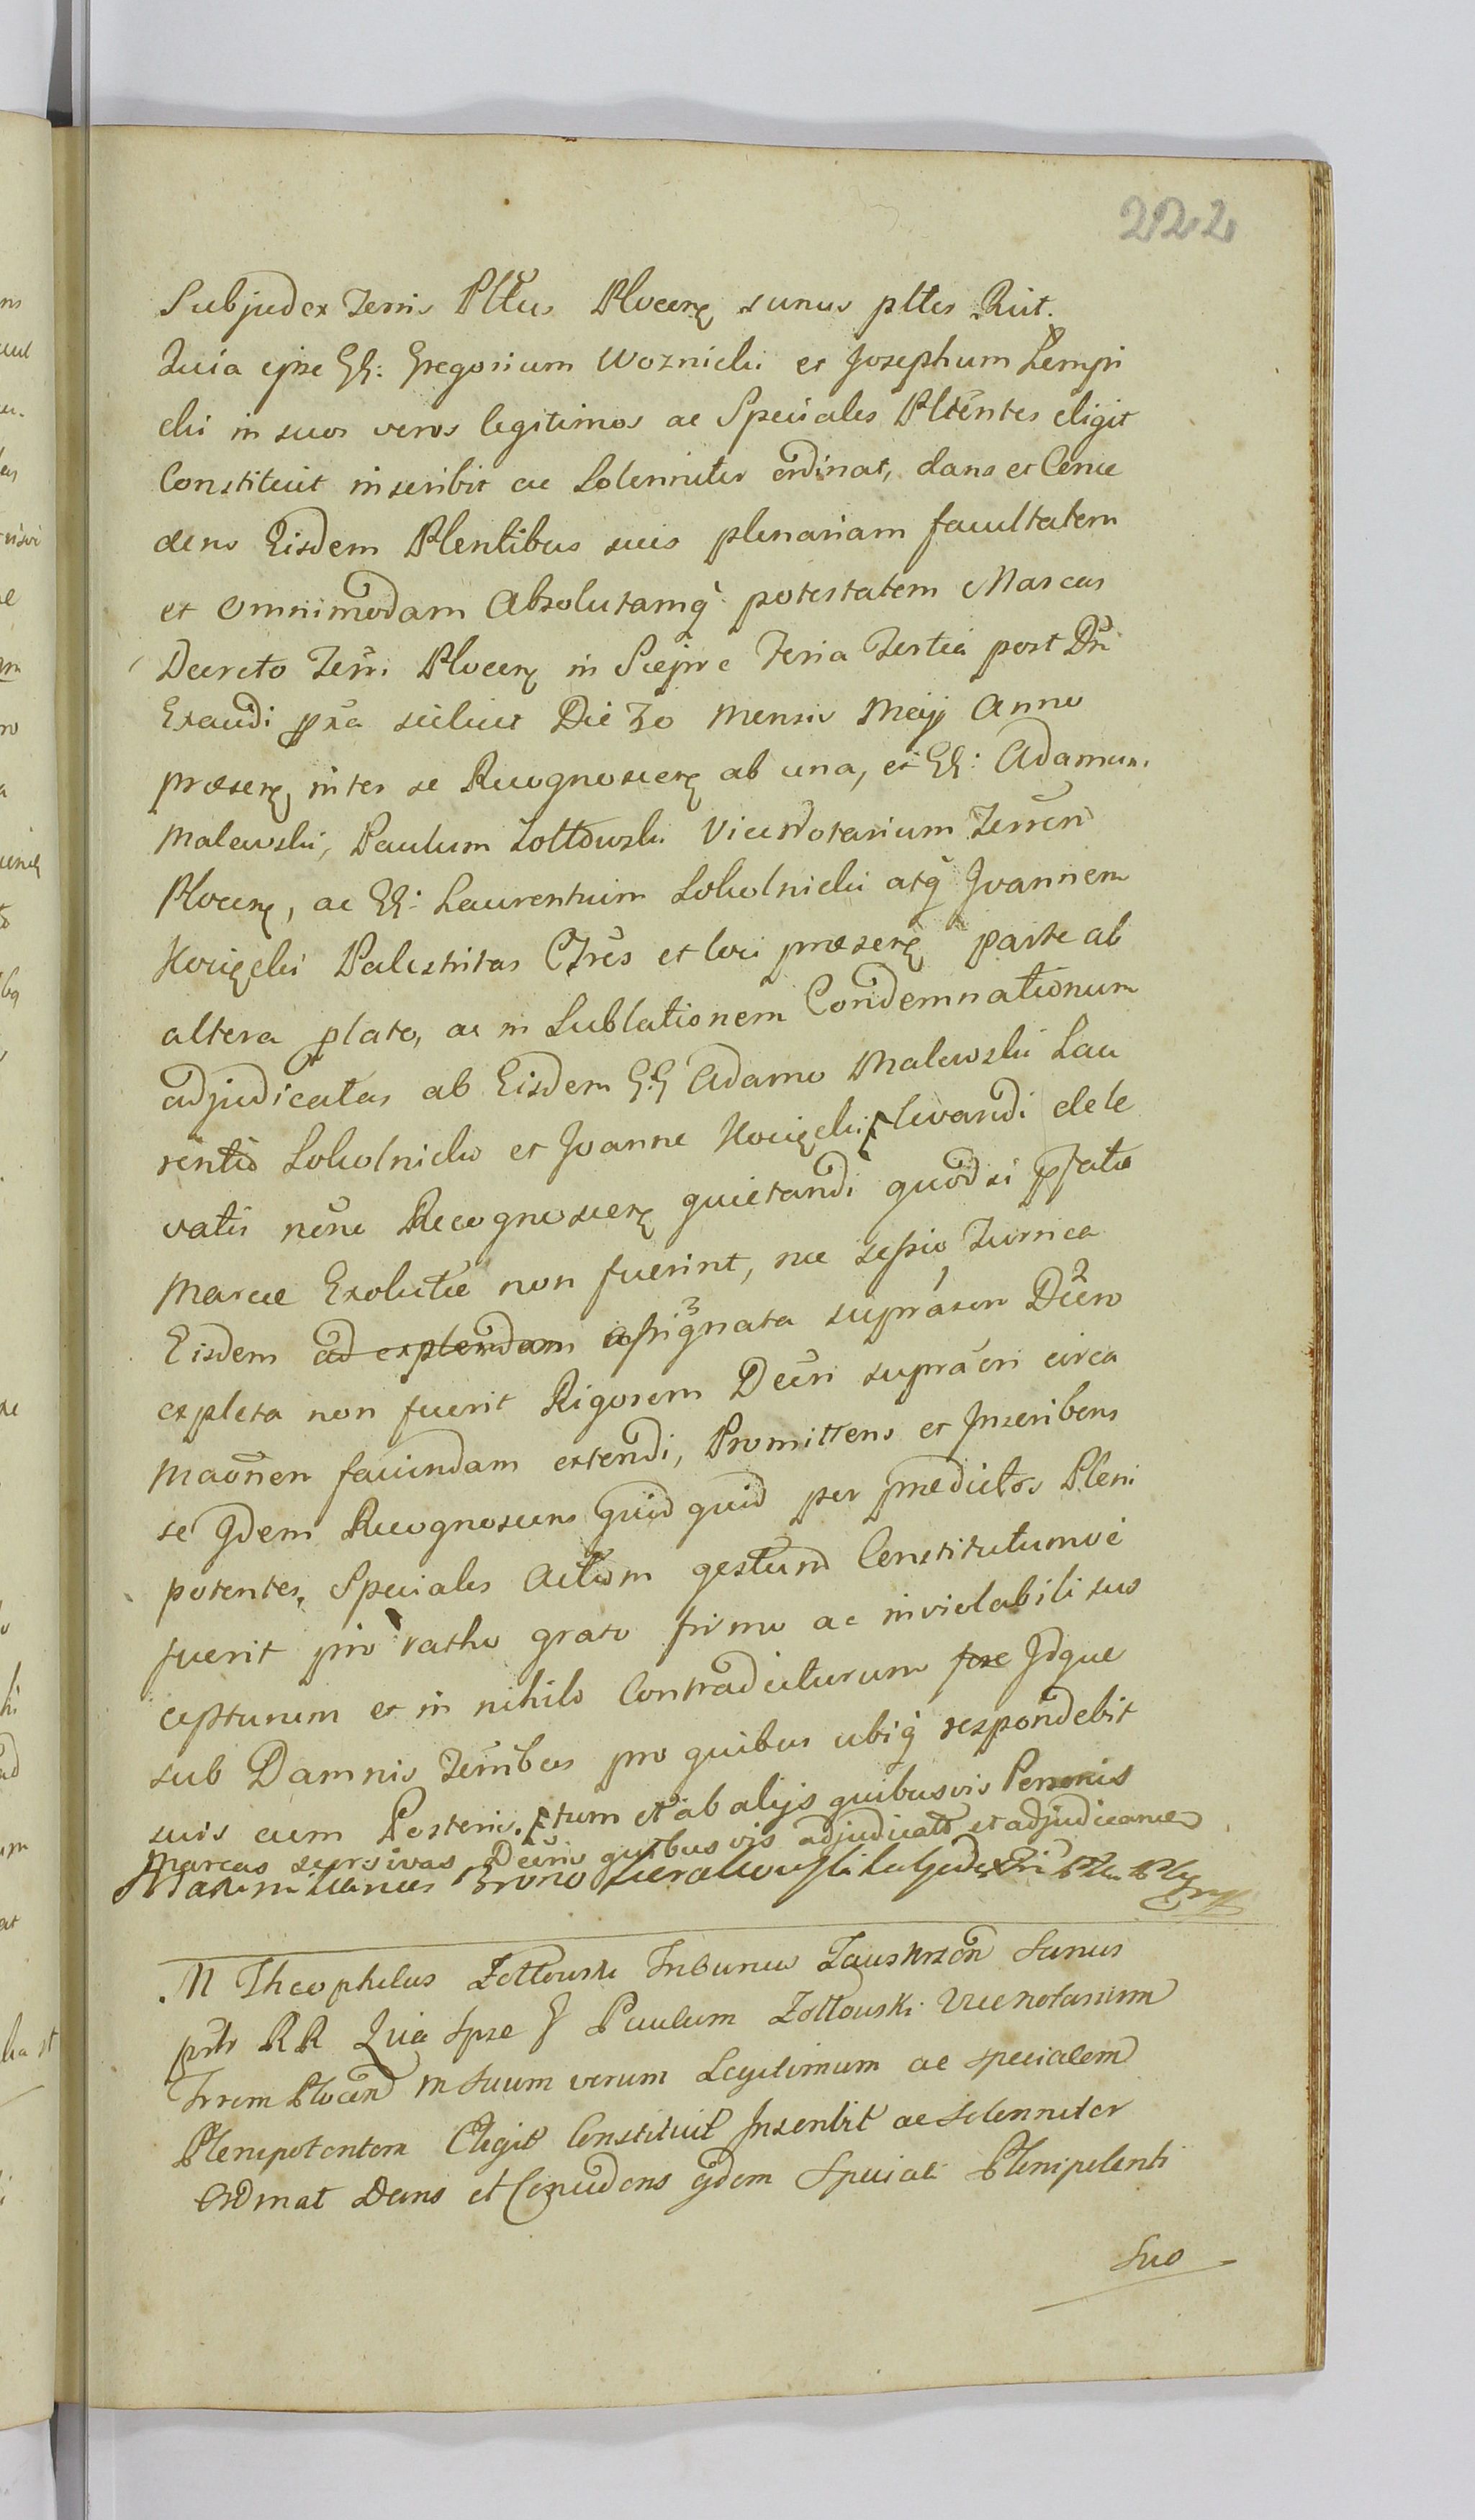 222
Subjudex Terris Pltus Plocen sanus pltes Rcit.
Quia ipse GG: Gregorium Woznicki et Josephum Lempi
cki in suos veros legitimos ac Speciales Pltentes eligit
Constituit inscribit ac Solenniter ordinat, dans et Conce
dens Eisdem Plentibus suis plenariam facultatem
et omnimodam Absolutamq potestatem Marcas
Decreto Terri Plocen in Sciepre Feria Tertia post Dni
Exaudi pxa scilicet Die 30 Mensis Maij Anno
præsen inter se Recognoscen ab una, et GG: Adamum
Malewski, Paulum Zoltowski ViceNotarium Terren
Plocen, ac GG: Laurentium Sokolnicki atq Joannem
Kocięcki Palestritas Ctres et loci præsen parte ab
altera plato, ac in Sublationem Condemnationum
adjudicatas ab Eisdem G:G Adamo Malewski Lau
rentio Sokolnicki et Joanne Kocięcki levandi dele
vatis nene Recognoscen quietandi quod si pfatæ
Marcæ Exolutæ non fuerint, nec sessio Turrica
Eisdem ad explendam assignata supraseri Decro
expleta non fuerit Rigorem Decri supraeri circa
Maonen faciendam extendi, Promittens et Inscribens
se Idem Recognoscens quid quid per prædictos Pleni
potentes Speciales Actum gestum Constitutumve
fuerit pro ratho grato firmo ac inviolabili sus
cepturum et in nihilo Contradicturum fore Idque
sub Damnis Terribus pro quibus ubiq respondebit
suis cum Posteris. tum et ab alijs quibusvis Personis
Marcas sursivas Decris quibus vis adjudicatas et adjudicandas
Maximilianus Bruno
M Theophilus Zoltowski Tribunus Zauskrzen Sanus
pntr RR Quia Ipse G Paulum Zoltowski Vicenotarium
Trrem Plocen in Suum verum Legitimum ac specialem
Plenipotentem Eligit Constituit Inscribit ac Solenniter
Ordinat Dans et Concedens eidem Speciali Plenipotenti
Suo